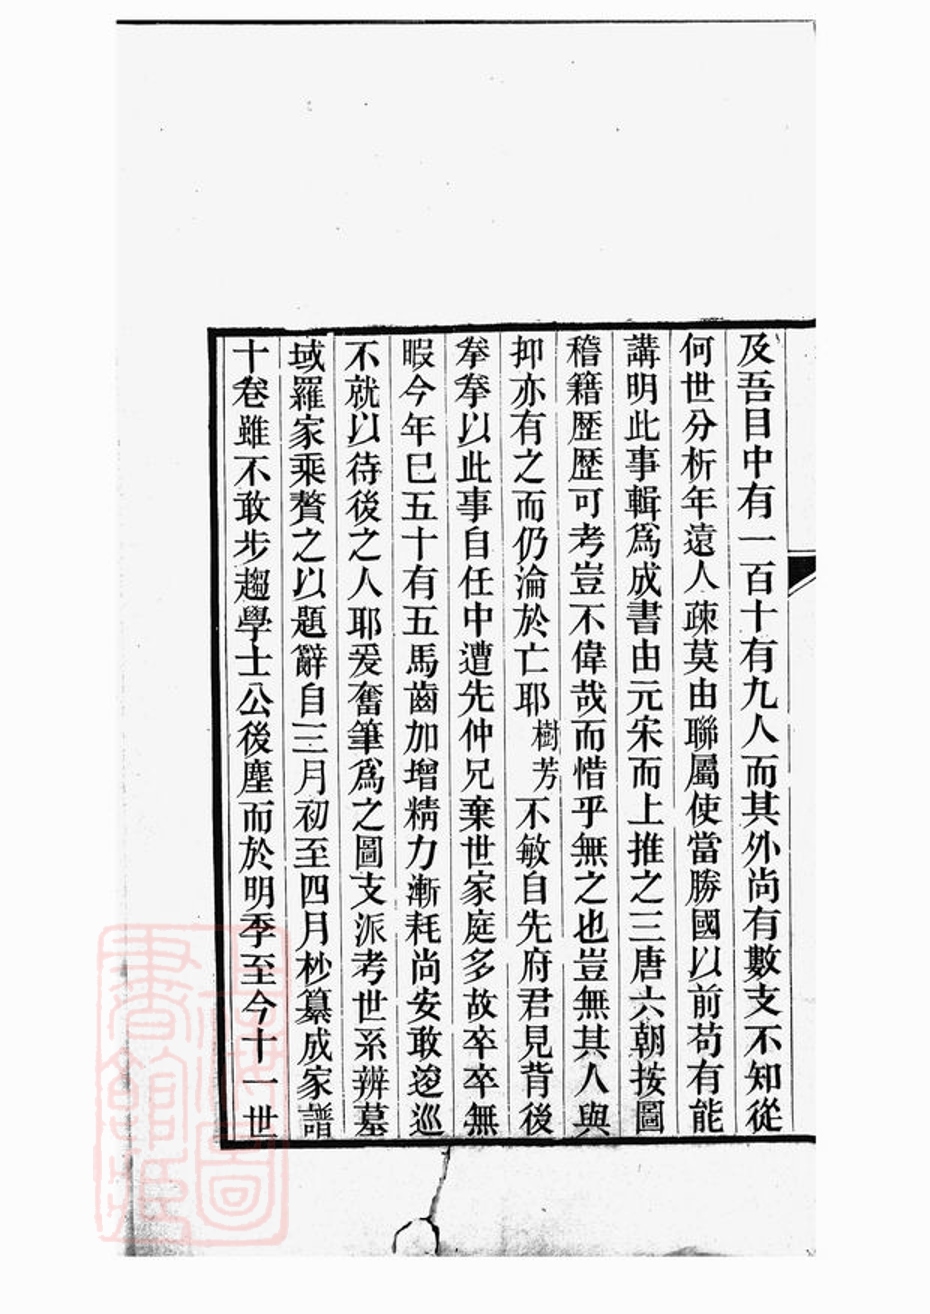 及吾目中有一百十有九人而其外尚有數支不知從
何世分析年遠人疎莫由聯屬使當勝國以前苟有能
講明此事輯爲成書由元宋而上推之三唐六朝按圖
稽籍歷歷可考豈不偉哉而惜乎無之也豈無其人與
抑亦有之而仍淪於亡耶樹芳不敏自先府君見背後
拳拳以此事自任中遭先仲兄棄世家庭多故卒卒無
暇今年巳五十有五馬齒加增精力漸耗尚安敢逡巡
不就以待後之人耶爰奮筆爲之圖支派考世系辨墓
域羅家乘贅之以題辭自三月初至四月杪纂成家譜
十卷雖不敢步趨學士公後塵而於明季至今十一世